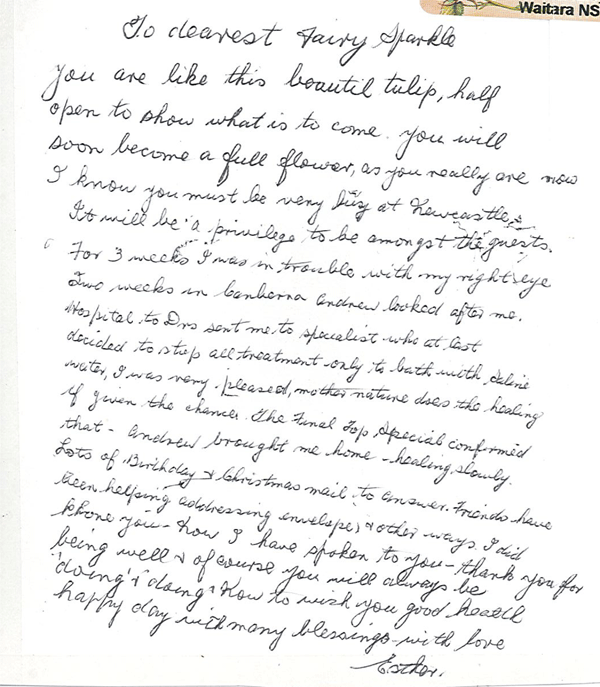 Waitara NS
To dearest Fairy Sparkle
You are like this beautil tulip, half
open to show what is to come. you will
soon become a full flower, as you really are now
I know you must be very busy at Newcastle
It will be a privilege to be amongst the guests.
For 3 weeks I was in trouble with my right eye
Two weeks in Canberra Andrew looked after me.
Hospital to Drs sent me to specialist who at last
decided to stop all treatment only to bath with saline
water, I was very pleased, mother nature does the healing
if given the chance. The Final Top Special confirmed
that - Andrew brought me home - healing slowly.
Lots of Birthday & Christmas mail to answer. Friends have
been helping addressing envelopes & other ways. I did
phone you - Now I have spoken to you - thank you for
being well & of course you will always be
'doing' & doing. Now to wish you good health
happy day with many blessings - with love
Esther.